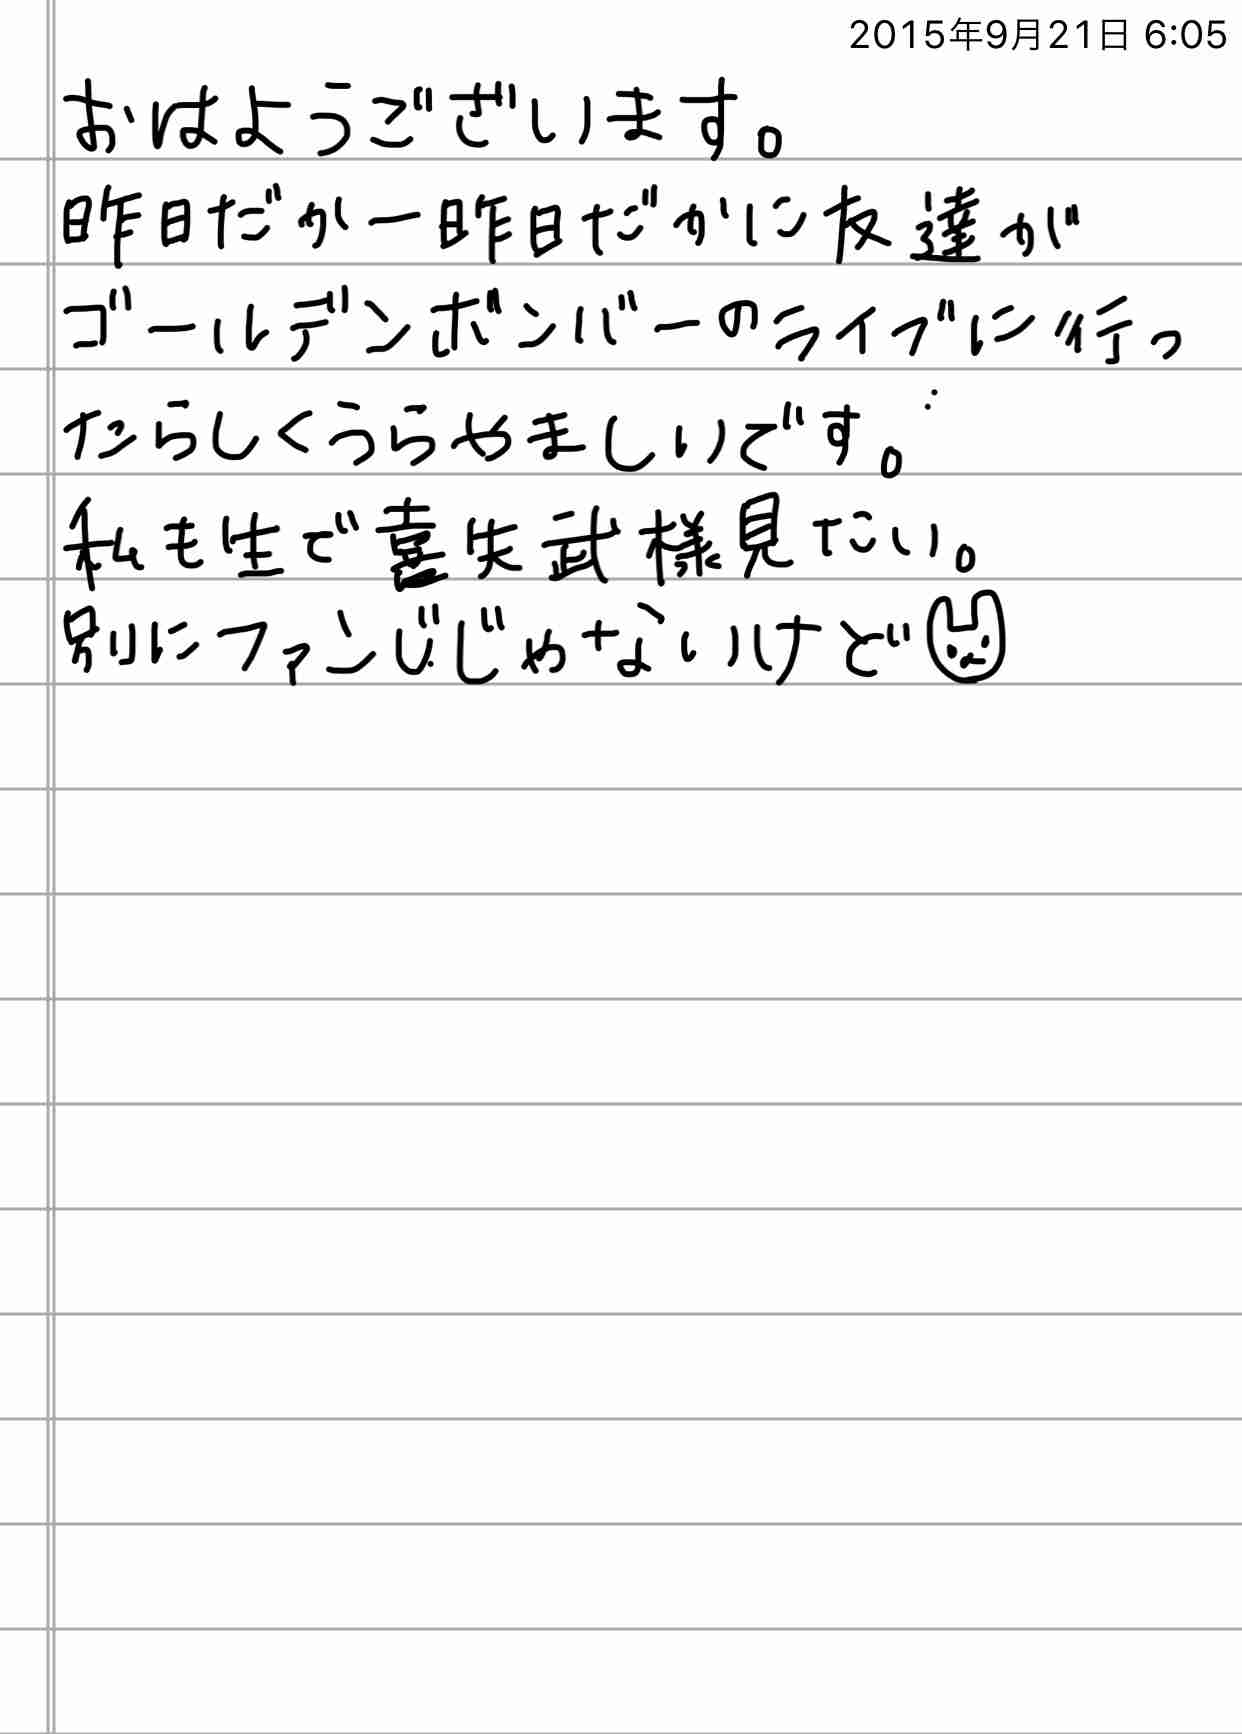 2015年9月21日 6:05
おはようございます。
昨日だか一昨日だかに友達が
ゴールデンボンバーのライブに行っ
たらしくうらやましいです。
私も生で喜矢武様見たい。
別にファンじじゃないけど